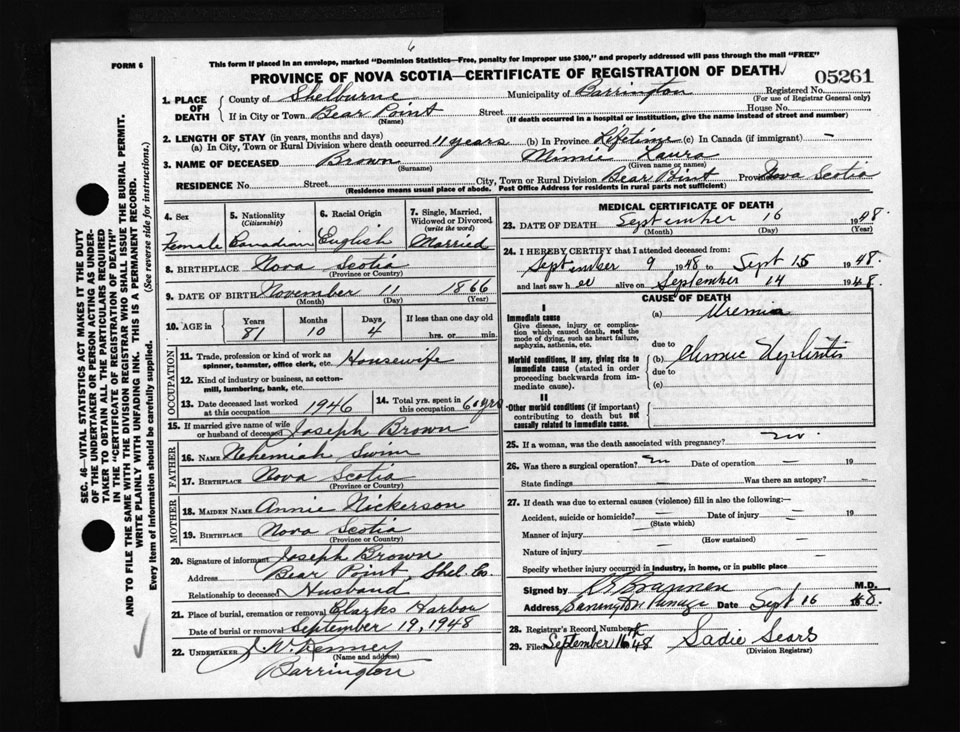 6
FORM 6
This form if placed in an envelope, marked "Dominion Statistics—Free, penalty for improper use $300," and properly addressed will pass through the mail "FREE"
PROVINCE OF NOVA SCOTIA—CERTIFICATE OF REGISTRATION OF DEATH
05261
1. PLACE OF DEATH
County of Shelburne Municipality of Barrington Registered No.
(For use of Registrar General only)
If in City or Town Bear Point Street House No.
(Name) (If death occurred in a hospital or institution, give the name instead of street and number)
2. LENGTH OF STAY (in years, months and days)
(a) In City, Town or Rural Division where death occurred 11 years (b) In Province Lifetime (c) In Canada (if immigrant) —
3. NAME OF DECEASED Brown Minnie Laura
(Surname) (Given name or names)
RESIDENCE No. Street City, Town or Rural Division Bear Point Province Nova Scotia
(Residence means usual place of abode. Post Office Address for residents in rural parts not sufficient)
4. Sex
Female
5. Nationality
(Citizenship)
Canadian
6. Racial Origin
English
7. Single, Married, Widowed or Divorced
(write the word)
Married
8. BIRTHPLACE Nova Scotia
(Province or Country)
9. DATE OF BIRTH November 11 1866
(Month) (Day) (Year)
10. AGE in
Years Months Days If less than one day old
81 10 4 hrs. or min.
OCCUPATION
11. Trade, profession or kind of work as
spinner, teamster, office clerk, etc. Housewife
12. Kind of industry or business, as cotton-
mill, lumbering, bank, etc.
13. Date deceased last worked
at this occupation 1946
14. Total yrs. spent in
this occupation 60 yrs
15. If married give name of wife
or husband of deceased Joseph Brown
FATHER
16. Name Nehemiah Swim
17. Birthplace Nova Scotia
(Province or Country)
MOTHER
18. Maiden Name Annie Nickerson
19. Birthplace Nova Scotia
(Province or Country)
20. Signature of informant Joseph Brown
Address Bear Point, Shel. Co.
Relationship to deceased Husband
21. Place of burial, cremation or removal Clarks Harbou
Date of burial or removal September 19, 1948
22. Undertaker J. W. Denney
(Name and address)
Barrington
MEDICAL CERTIFICATE OF DEATH
23. DATE OF DEATH September 16 1948.
(Month) (Day) (Year)
24. I HEREBY CERTIFY that I attended deceased from:
September 9 1948 to Sept 15 1948.
and last saw her alive on September 14 1948.
CAUSE OF DEATH
I
Immediate cause
Give disease, injury or complication which caused death, not the mode of dying, such as heart failure, asphyxia, asthenia, etc.
(a) Uremia
due to
Morbid conditions, if any, giving rise to immediate cause (stated in order proceeding backwards from immediate cause).
(b) Chronic Nephritis
due to
(c)
II
Other morbid conditions (if important) contributing to death but not causally related to immediate cause.
25. If a woman, was the death associated with pregnancy? no
26. Was there a surgical operation? no Date of operation — 19
State findings Was there an autopsy? —
27. If death was due to external causes (violence) fill in also the following:—
Accident, suicide or homicide? — Date of injury — 19
(State which)
Manner of injury —
(How sustained)
Nature of injury —
Specify whether injury occurred in industry, in home, or in public place
Signed by M.D.
Address Barrington Passage Date Sept 16 1948.
28. Registrar's Record Number
29. Filed September 16 1948 Sadie Sears
(Division Registrar)
SEC. 46—VITAL STATISTICS ACT MAKES IT THE DUTY
OF THE UNDERTAKER OR PERSON ACTING AS UNDER-
TAKER TO OBTAIN ALL THE PARTICULARS REQUIRED
IN THE "CERTIFICATE OF REGISTRATION OF DEATH"
AND TO FILE THE SAME WITH THE DIVISION REGISTRAR WHO SHALL ISSUE THE BURIAL PERMIT.
WRITE PLAINLY WITH UNFADING INK. THIS IS A PERMANENT RECORD.
Every item of information should be carefully supplied. (See reverse side for instructions.)